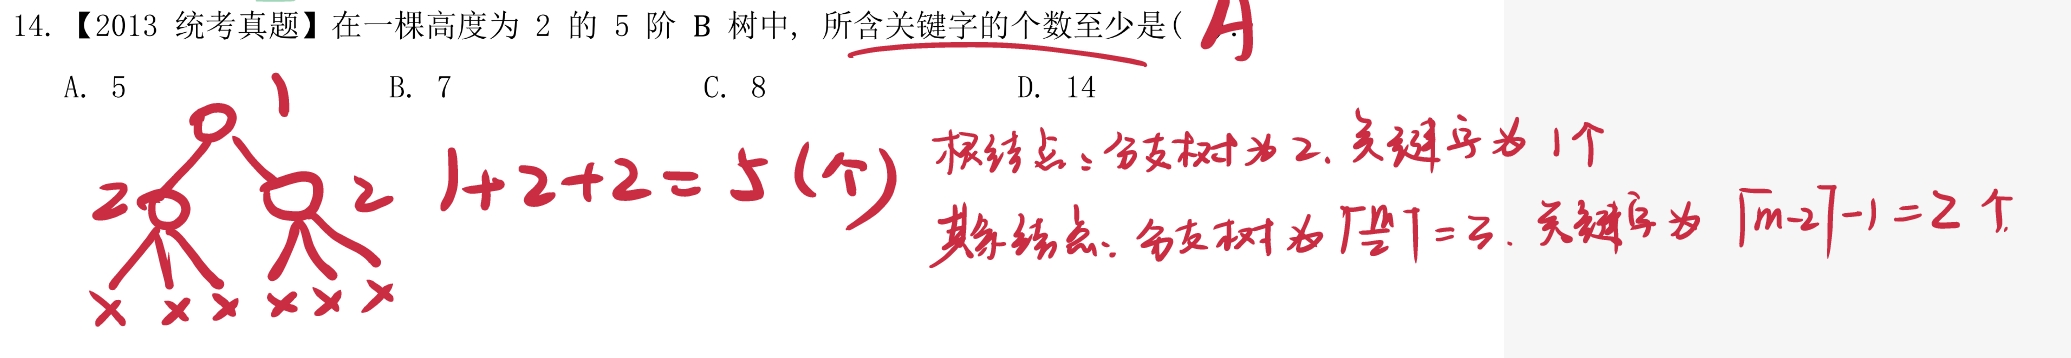 14.【2013 统考真题】在一棵高度为 2 的 5 阶 B 树中，所含关键字的个数至少是( A
A. 5 B. 7 C. 8 D. 14
1
2 2
1+2+2=5(个)
× × × × × ×
根结点：分支树为2，关键字为 1个
其余结点：分支树为⌈m/2⌉=3，关键字为 ⌈m-2⌉-1=2个.